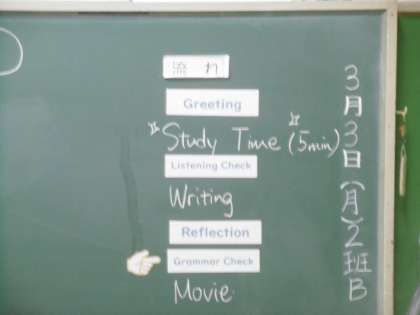 流れ
Greeting
"Study Time (5min)"
Listening Check
Writing
Reflection
Grammar Check
Movie
3月3日(月)2班B